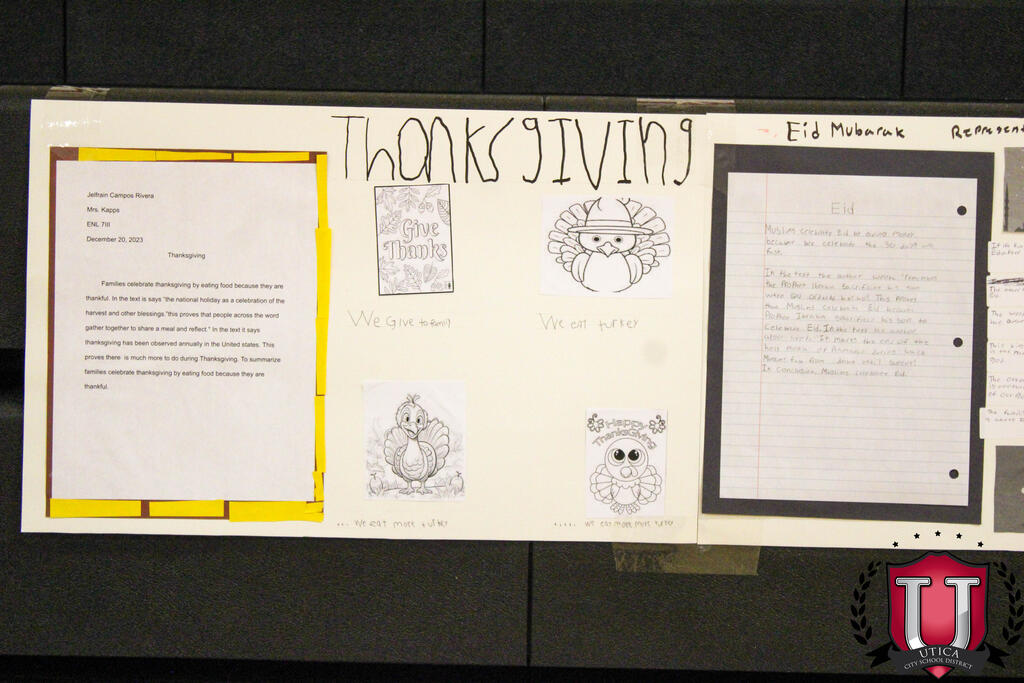 Jelfrain Campos Rivera
Mrs. Kapps
ENL 7III
December 20, 2023
Thanksgiving
Families celebrate thanksgiving by eating food because they are
thankful. In the text is says "the national holiday as a celebration of the
harvest and other blessings."this proves that people across the world
gather together to share a meal and reflect." In the text it says
thanksgiving has been observed annually in the United states. This
proves there is much more to do during Thanksgiving. To summarize
families celebrate thanksgiving by eating food because they are
thankful.
THANKSgIVING
Give
Thanks
We Give to family
We eat turkey
... We eat more turkey
Happy
Thanksgiving
..... we eat more more turkey
Eid Mubarak
Represent
Eid
Muslims celebrate Eid by giving money
because we celebrate the 30 days we
fast.
In the text the author wrote
the Prophet Ibrahim sacrificing his son
when God ordered him to. This proves
that Muslims celebrate Eid because
Prophet Ibrahim sacrifice his son to
celebrate Eid. In the text the author
also says It marks the end of the
holy month of Ramadan during which
Muslims fast from dawn until sunset
In conclusion, Muslims celebrate Eid.
U
UTICA
CITY SCHOOL DISTRICT